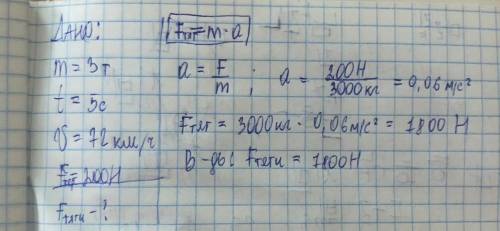 Дано:
m = 3т
t = 5с
V = 72 км/ч
F = 200Н
Fтяги - ?
Fтяг = m · a
a = F/m ; a = 200Н/3000кг = 0,06 м/с²
Fтяг = 3000кг · 0,06м/с² = 1800 Н
В-дь: Fтяги = 1800Н